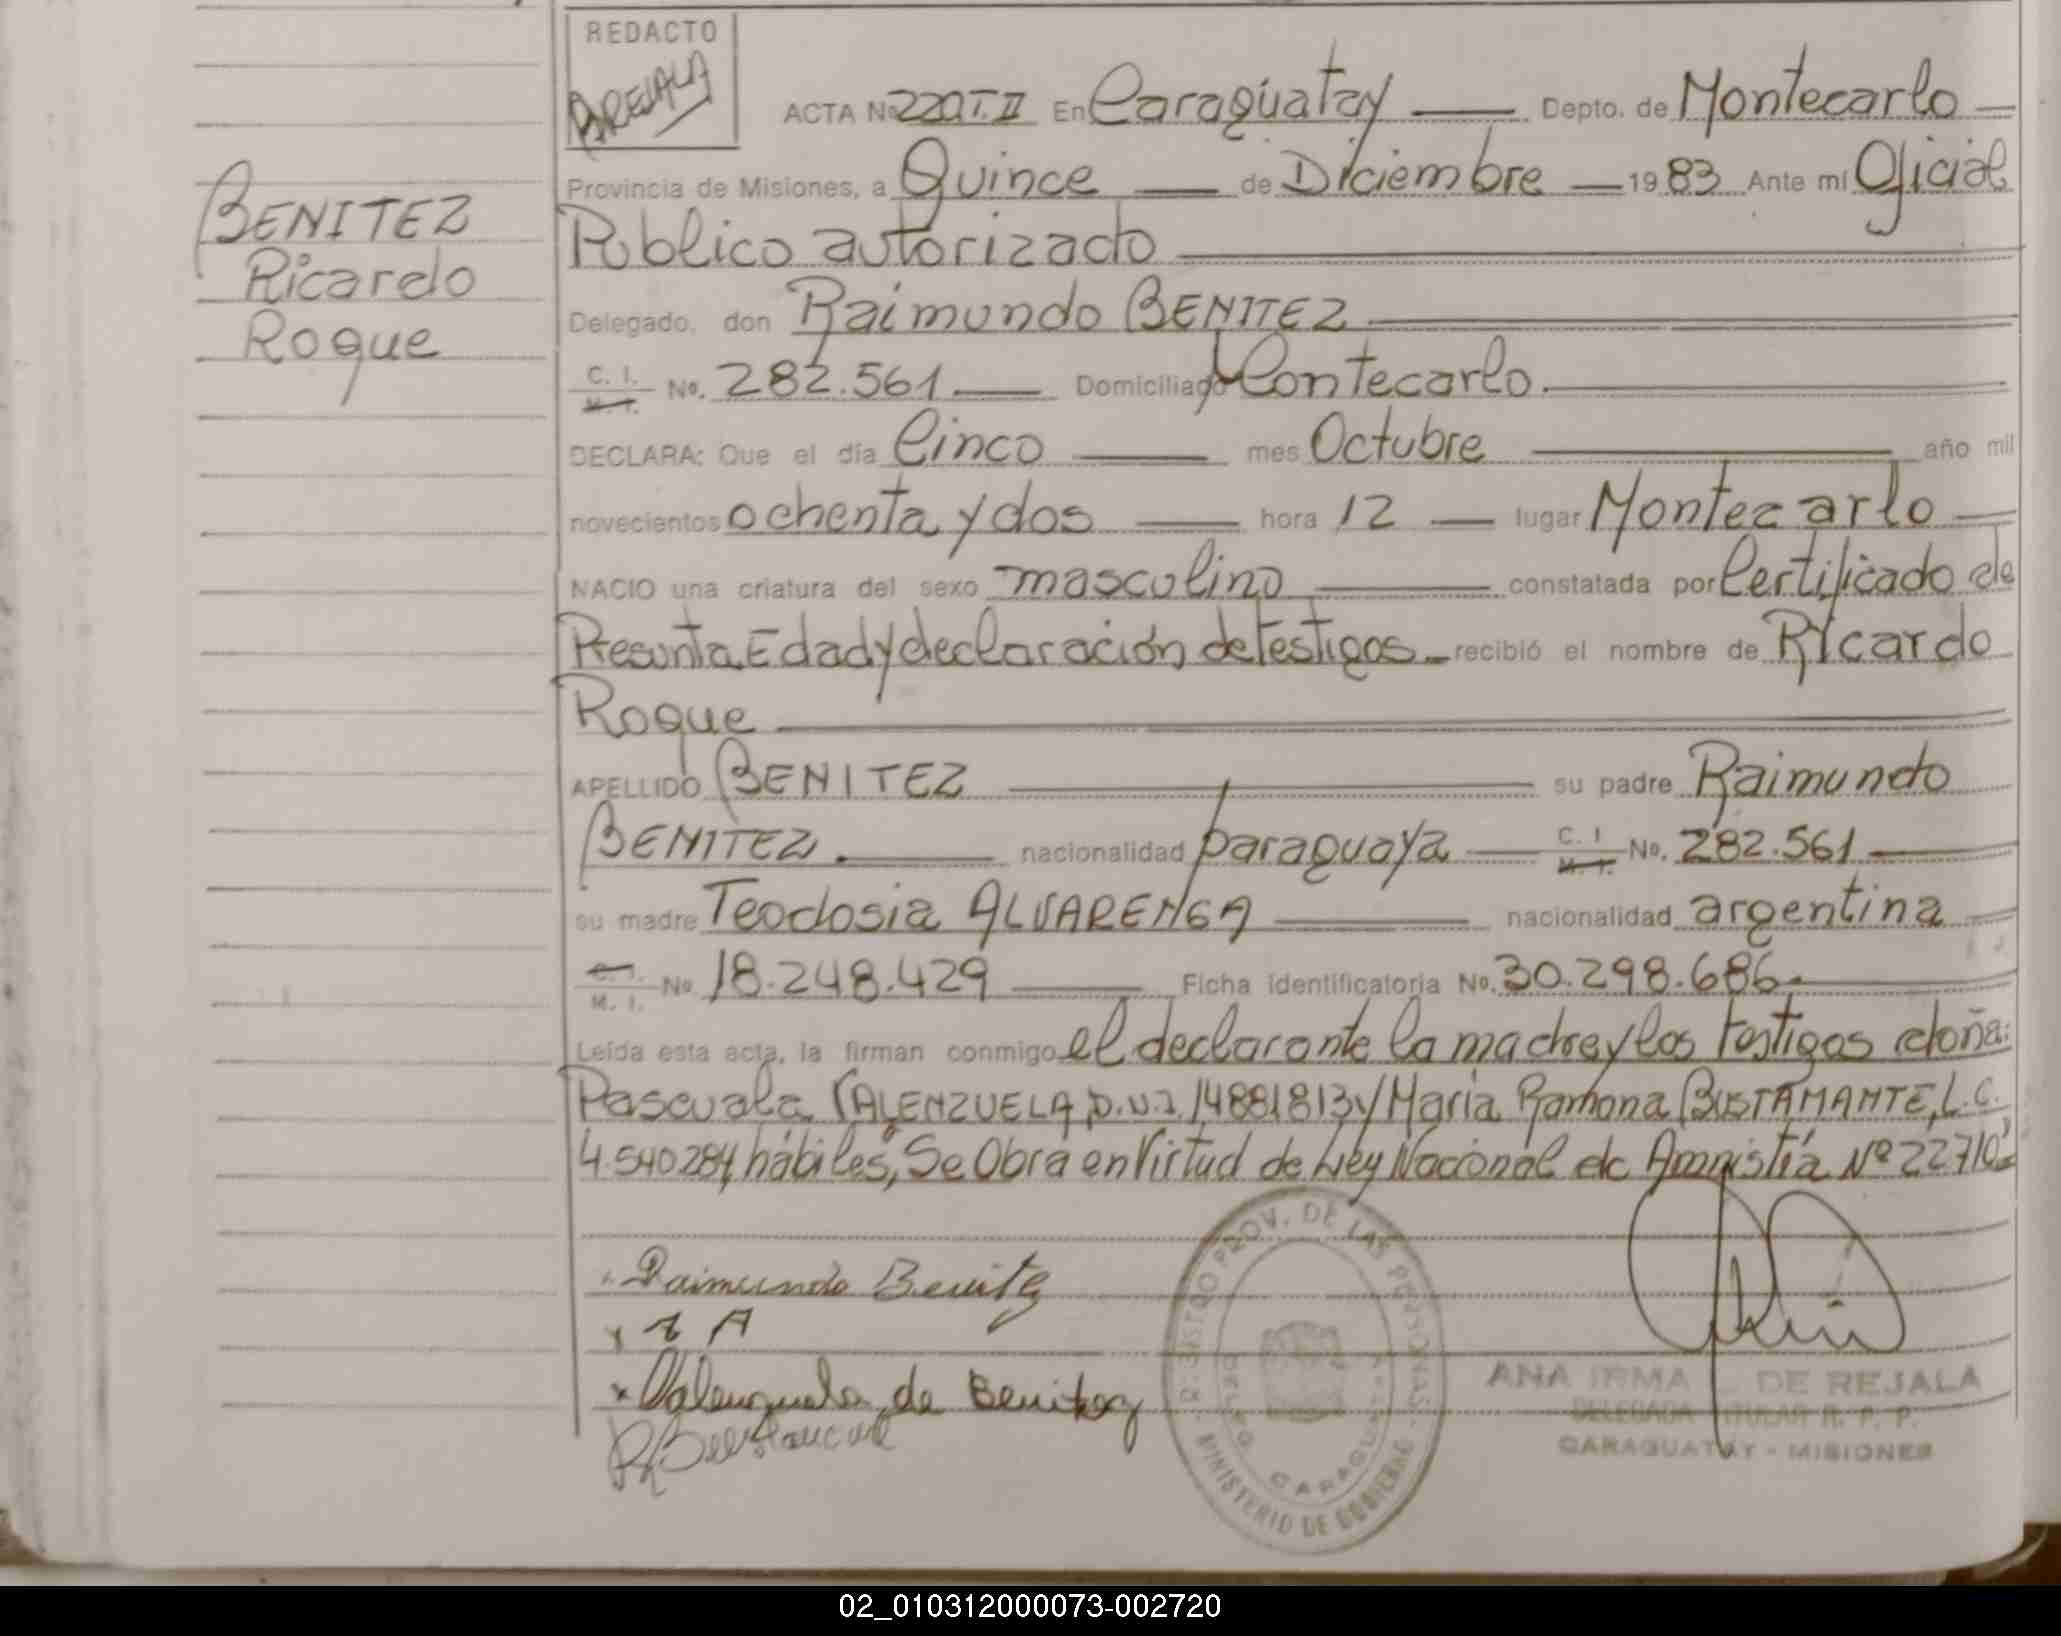 REDACTO
AREJALA
ACTA Nº 220T.II En Caraguatay Depto. de Montecarlo
Provincia de Misiones, a Quince de Diciembre 1983 Ante mi Oficial
Público autorizado
Delegado, don Raimundo BENITEZ
C. I. M. I. No. 282.561 Domiciliado Montecarlo.
DECLARA: Que el día Cinco mes Octubre año mil
novecientos ochenta y dos hora 12 lugar Montecarlo
NACIO una criatura del sexo masculino constatada por Certificado de
Presunta Edad y declaración de Testigos recibió el nombre de Ricardo
Roque
APELLIDO BENITEZ su padre Raimundo
BENITEZ nacionalidad paraguaya C. I. M. I. No. 282.561
su madre Teodosia ALVARENGA nacionalidad argentina
C. I. M. I. No 18.248.429 Ficha identificatoria No. 30.298.686.
Leída esta acta, la firman conmigo el declarante la madre y los testigos doña:
Pascuala VALENZUELA, D.N.I. 14881813 y María Ramona BUSTAMANTE, L.C.
4.540284, hábiles, Se Obra en Virtud de Ley Nacional de Amnistía Nº 22710
BENITEZ
Ricardo
Roque
Raimundo Benitez
x T A
x Valenzuela de Benitez
REGISTRO PROV. DE LAS PERSONAS
MINISTERIO DE GOBIERNO
CARAGUATAY
ANA IRMA DE REJALA
DELEGADA TITULAR R. P. P.
CARAGUATAY - MISIONES
02_010312000073-002720